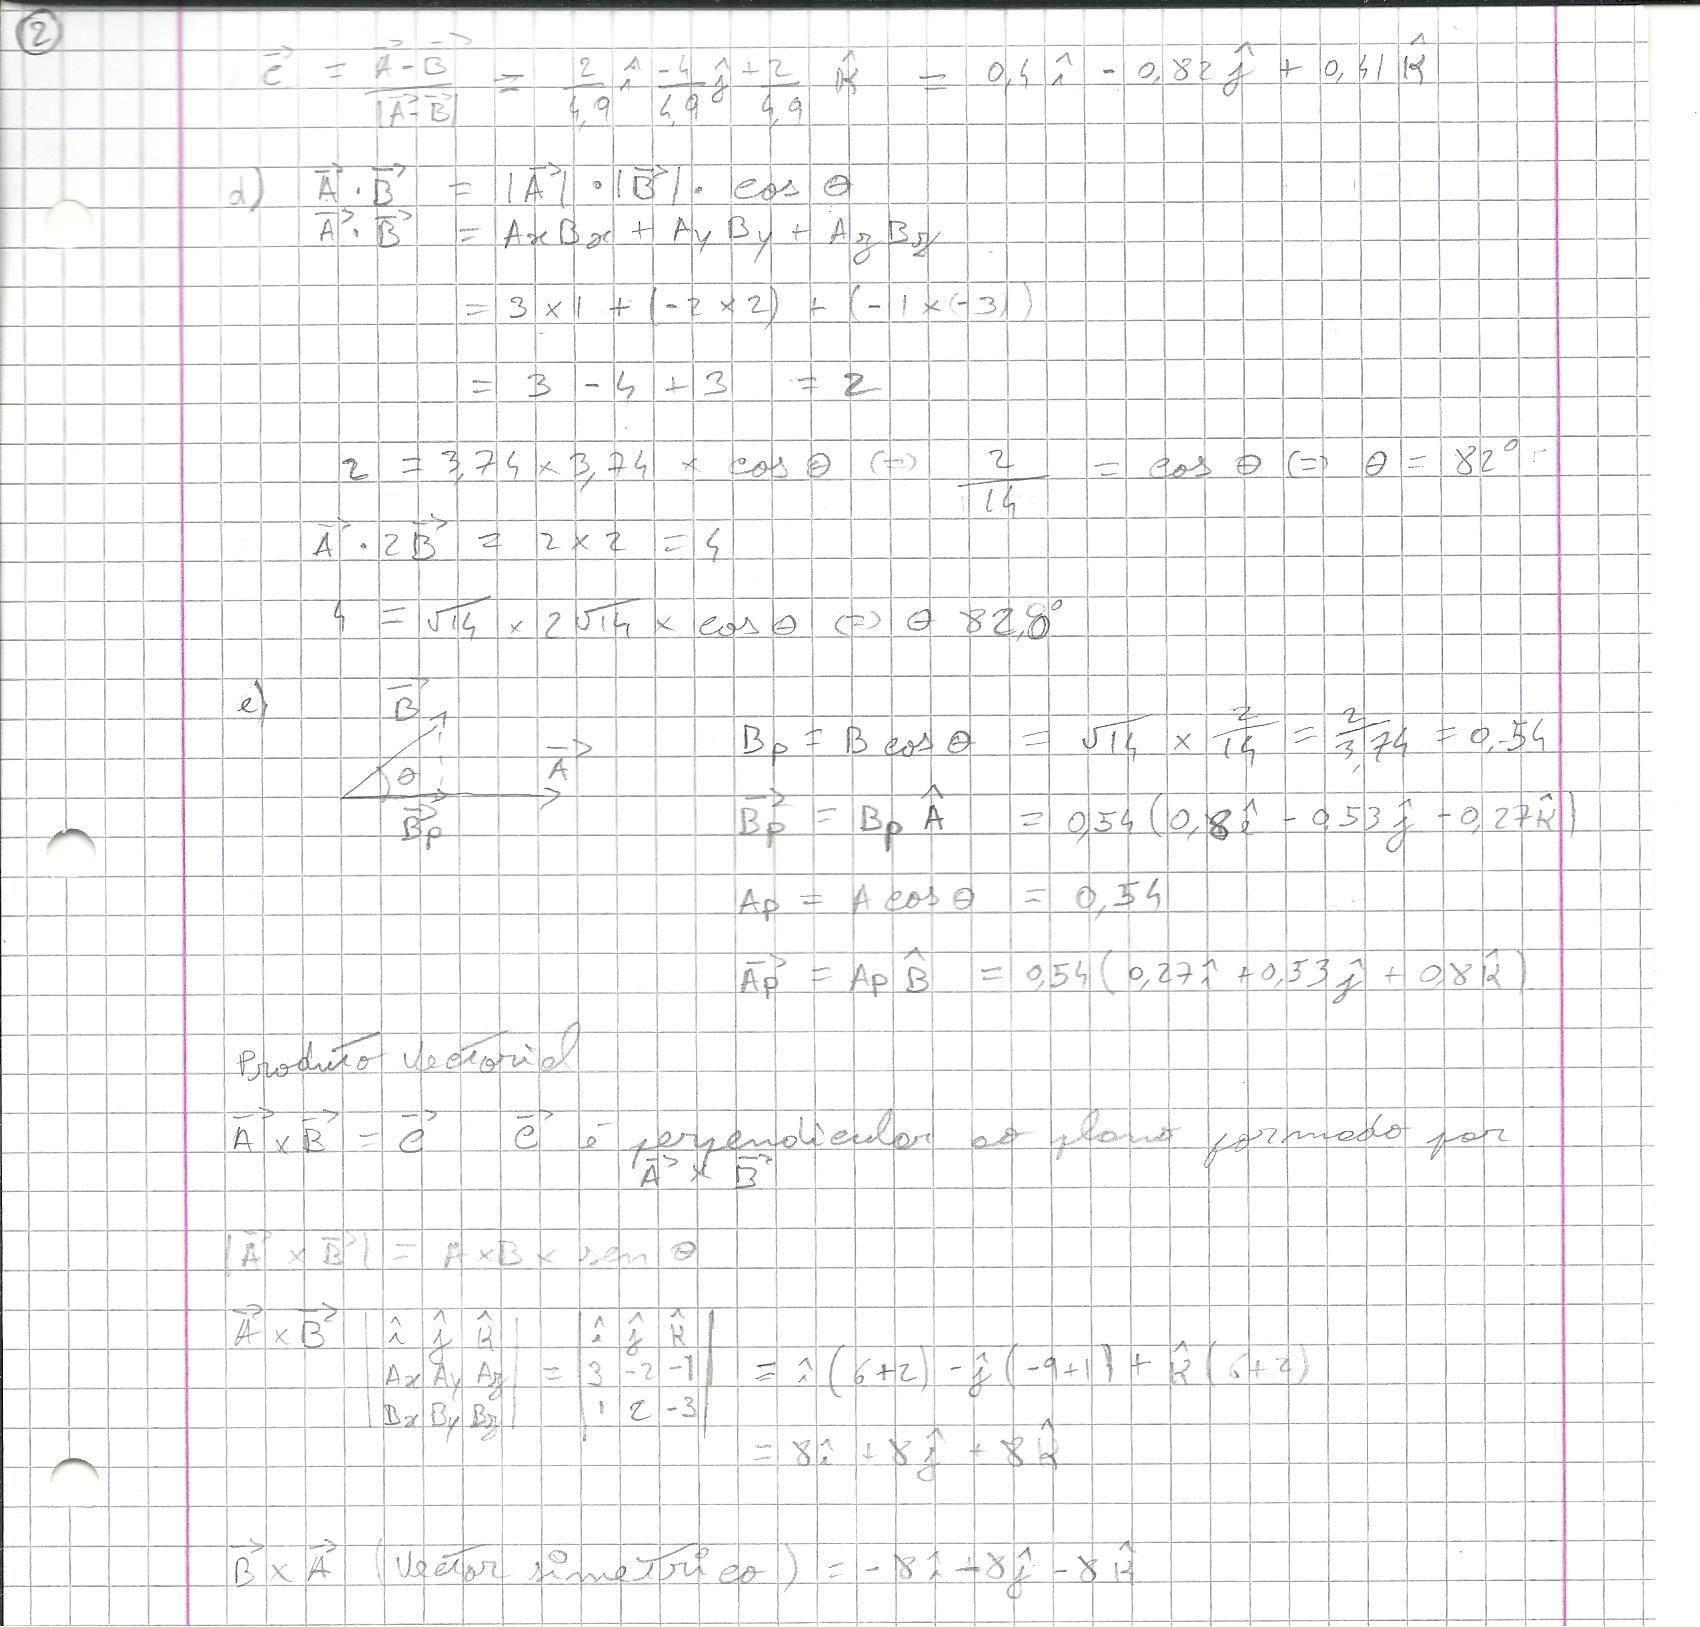 2
C⃗ = (A⃗ - B⃗)/|A⃗ - B⃗| = 2/4,9 î -4/4,9 ĵ + 2/4,9 k̂ = 0,4 î - 0,82 ĵ + 0,41 k̂
d) A⃗ · B⃗ = |A⃗| · |B⃗| · cos θ
A⃗ · B⃗ = AxBx + AyBy + AzBz
= 3 × 1 + (-2 × 2) + (-1 × (-3))
= 3 - 4 + 3 = 2
2 = 3,74 × 3,74 × cos θ (=) 2/14 = cos θ (=) θ = 82°
A⃗ · 2B⃗ = 2 × 2 = 4
4 = √14 × 2√14 × cos θ (=) θ 82,8°
e) B⃗ θ A⃗ B⃗p
Bp = B cos θ = √14 × 2/14 = 2/3,74 = 0,54
B⃗p = Bp Â = 0,54 (0,8 î - 0,53 ĵ - 0,27 k̂)
Ap = A cos θ = 0,54
A⃗p = Ap B̂ = 0,54 (0,27 î + 0,53 ĵ + 0,8 k̂)
Produto Vectorial
A⃗ × B⃗ = C⃗ C⃗ é perpendicular ao plano formado por
A⃗ × B⃗
|A⃗ × B⃗| = A × B × sen θ
A⃗ × B⃗ | î ĵ k̂ | = | î ĵ k̂ |
| Ax Ay Az | | 3 -2 -1 | = î (6+2) - ĵ (-9+1) + k̂ (6+2)
| Bx By Bz | | 1 2 -3 |
= 8 î + 8 ĵ + 8 k̂
B⃗ × A⃗ (Vector simetrico) = -8 î - 8 ĵ - 8 k̂